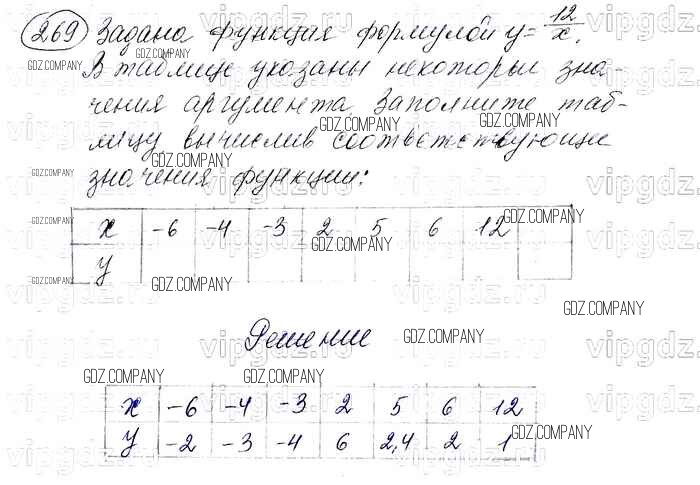 269 Задана функция формулой y = 12/x.
В таблице указаны некоторые зна-
чения аргумента Заполните таб-
лицу вычислив соответствующие
значения функции:
x -6 -4 -3 2 5 6 12
y
Решение
x -6 -4 -3 2 5 6 12
y -2 -3 -4 6 2,4 2 1
GDZ.COMPANY
vipgdz.ru